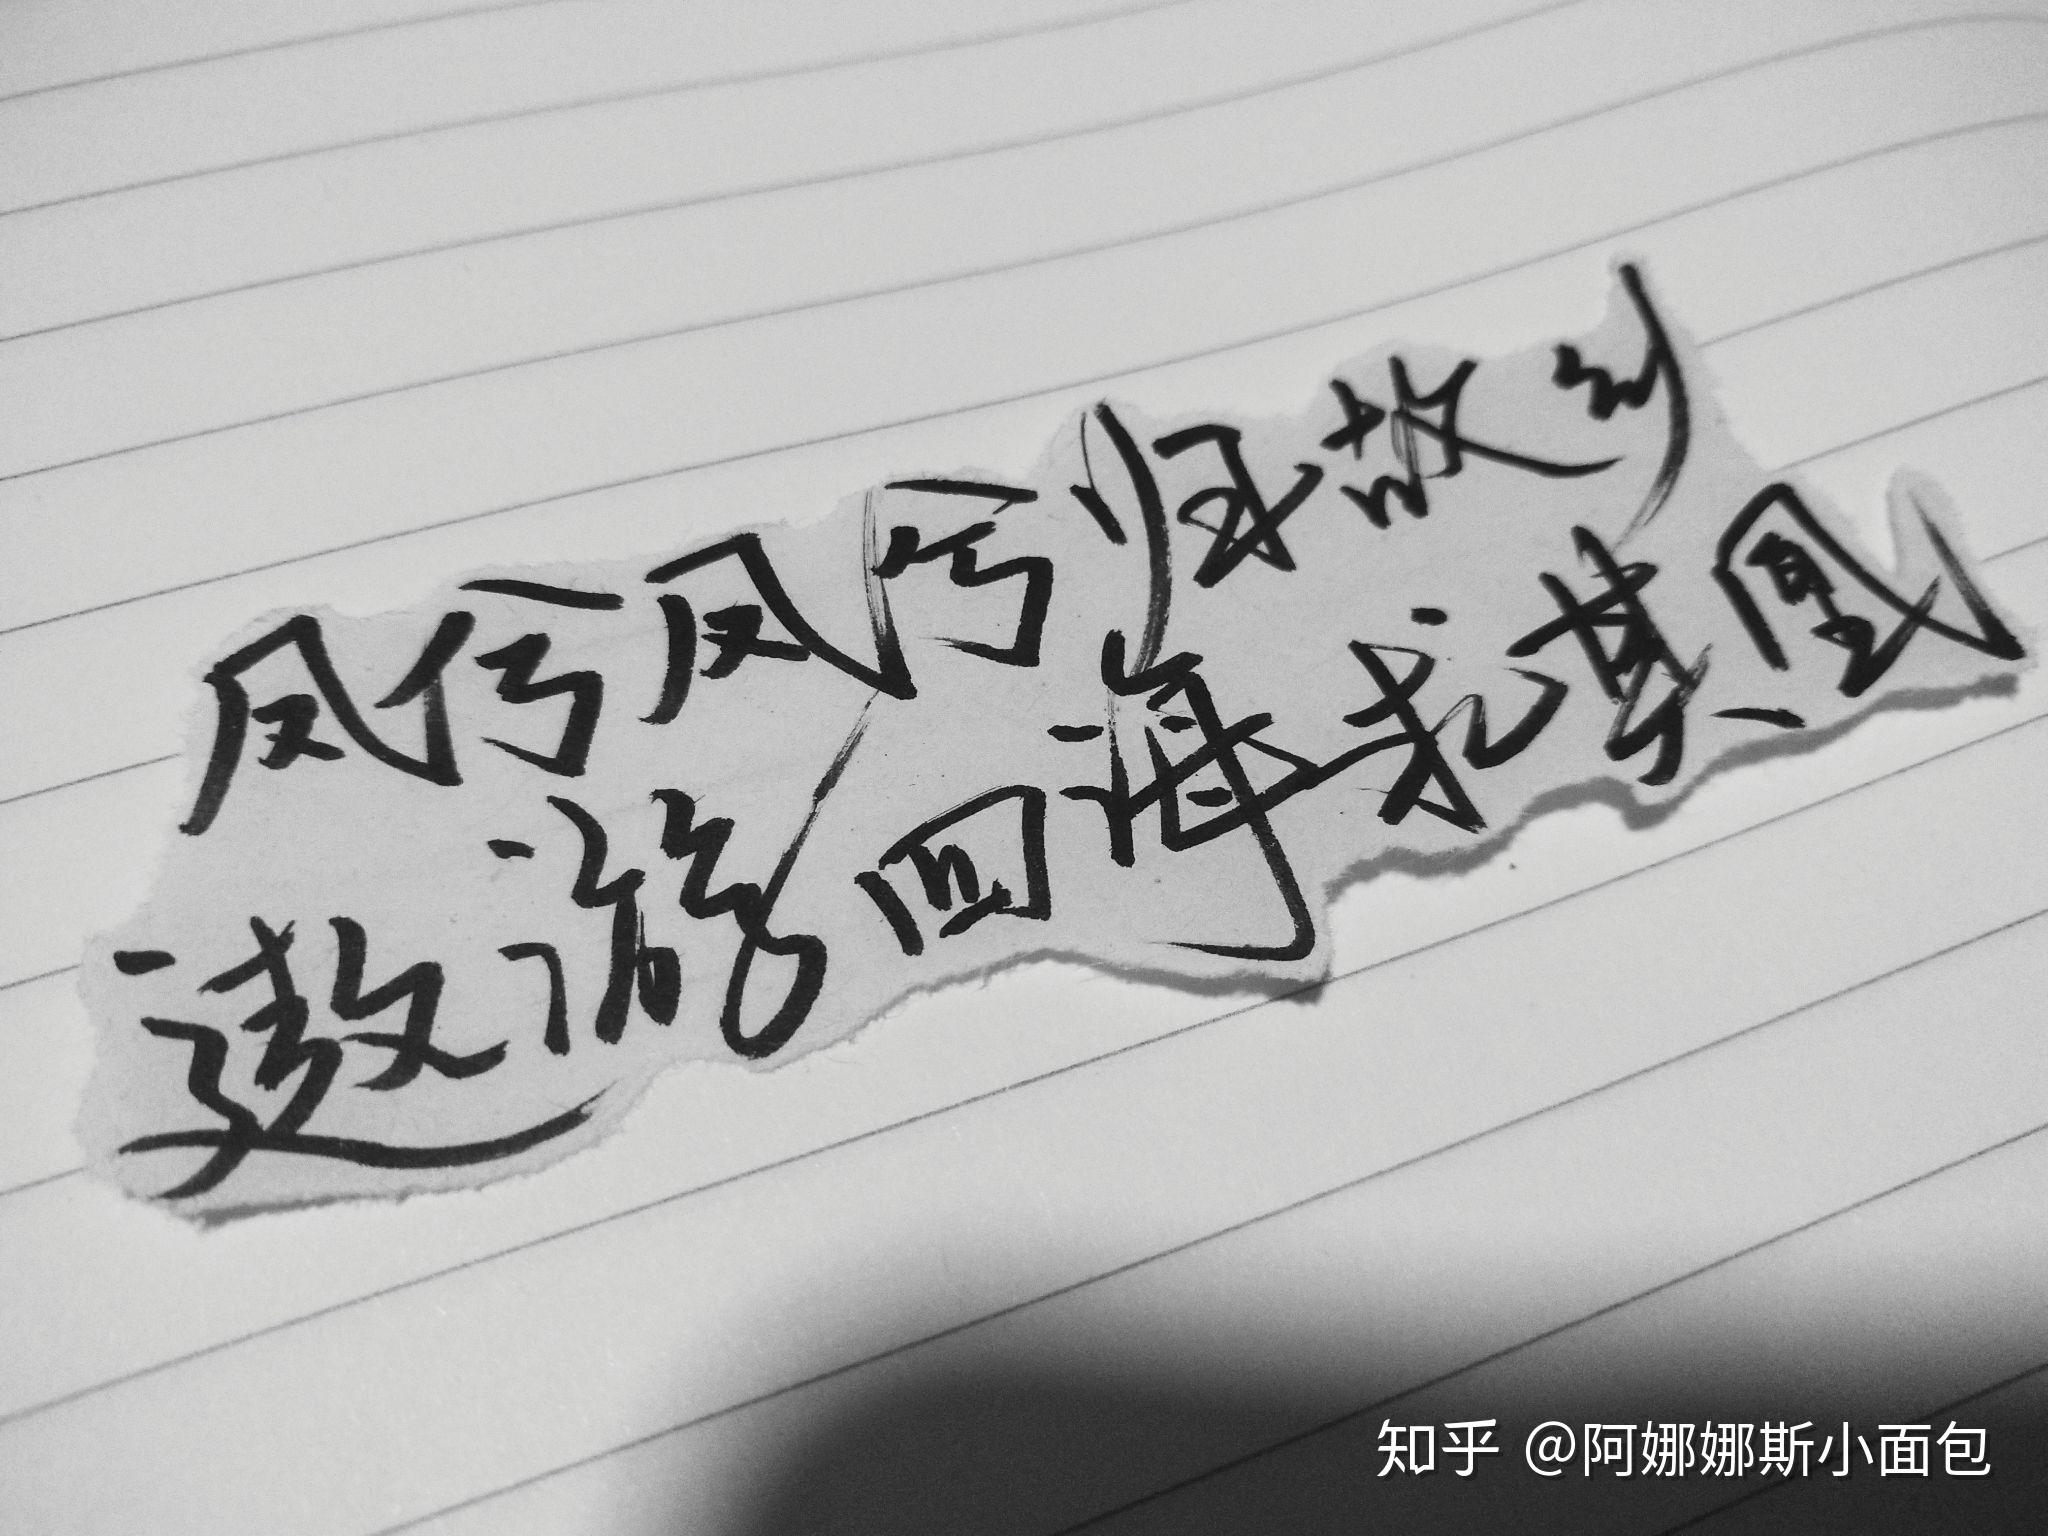 凤兮凤兮归故乡
遨游四海求其凰
知乎 @阿娜娜斯小面包